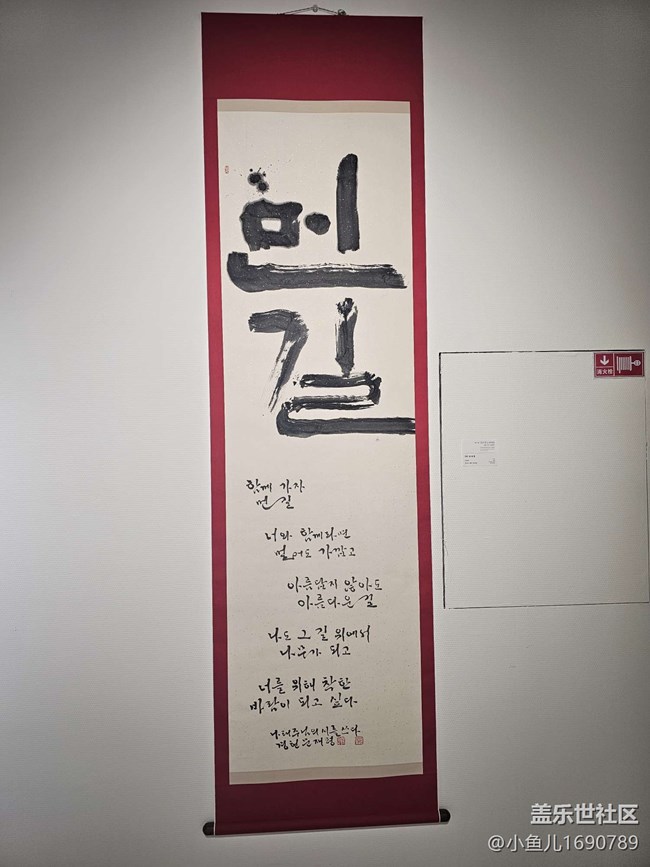 먼
길
함께 가자
먼 길
너와 함께라면
멀어도 가깝고
아름답지 않아도
아름다운 길
나도 그 길 위에서
나무가 되고
너를 위해 착한
바람이 되고 싶다
나태주님의 시를 쓰다
消火栓
盖乐世社区
@小鱼儿1690789